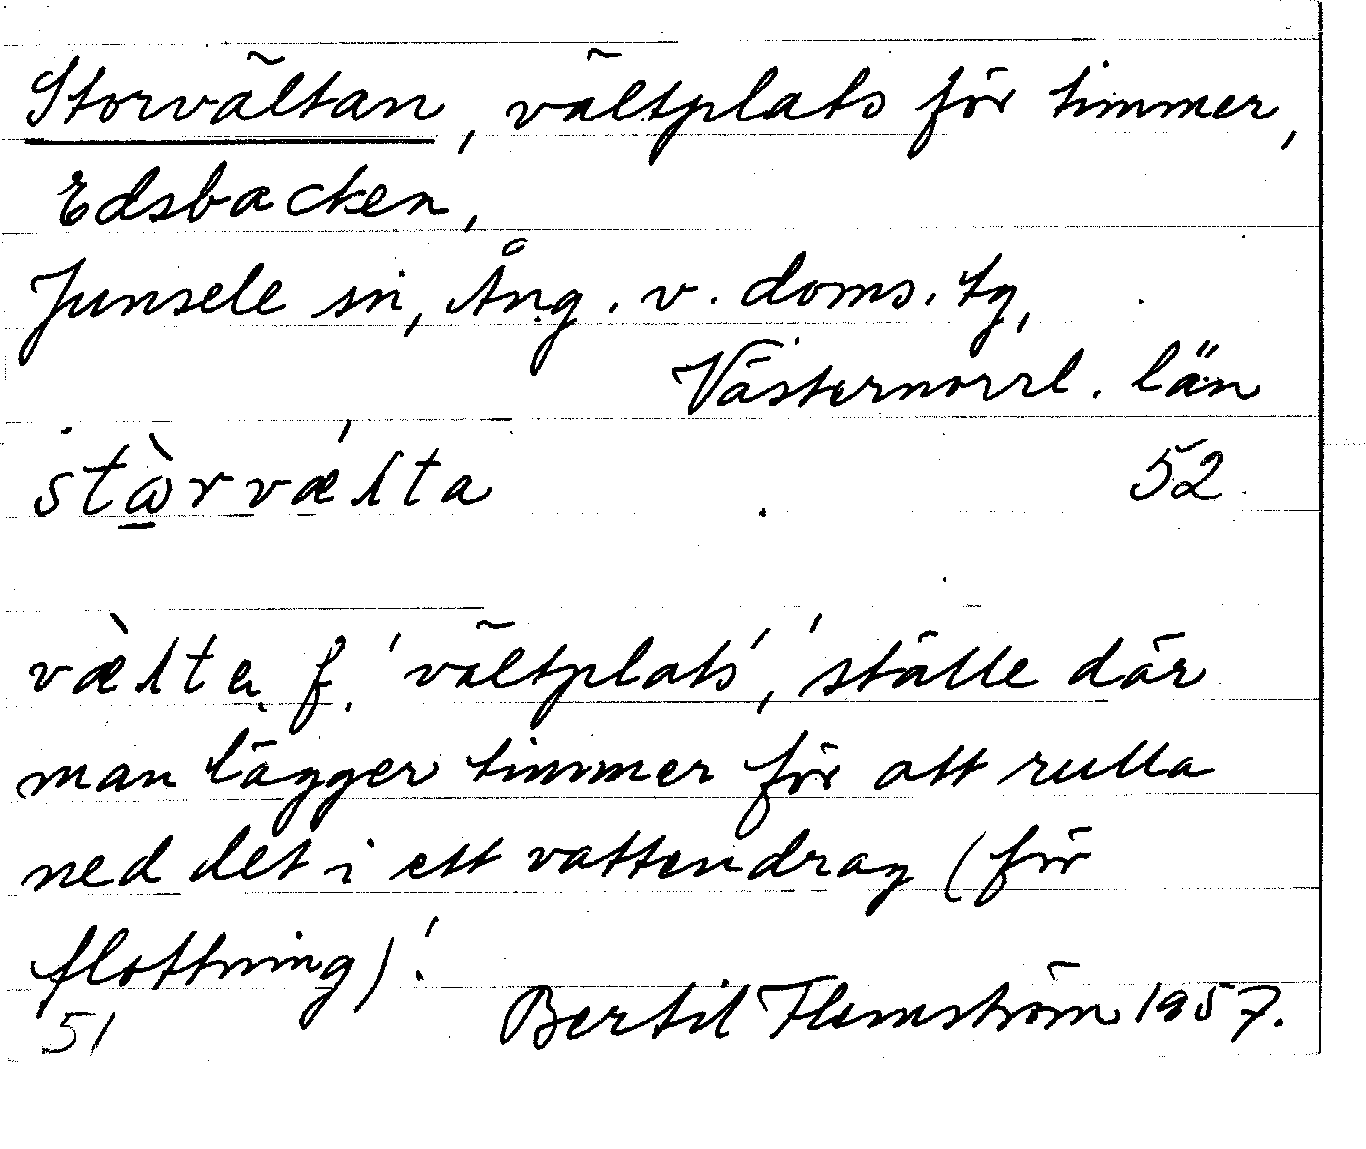 Storvältan, vältplats för timmer,
Edsbacken,
Junsele sn, Ång. v. doms. tg,
Västernorrl. län
stὼ̲rvǽlta 52
væ̀lta f. 'vältplats', 'ställe där
man lägger timmer för att rulla
ned det i ett vattendrag (för
flottning)'.
51 Bertil Flemström 1957.